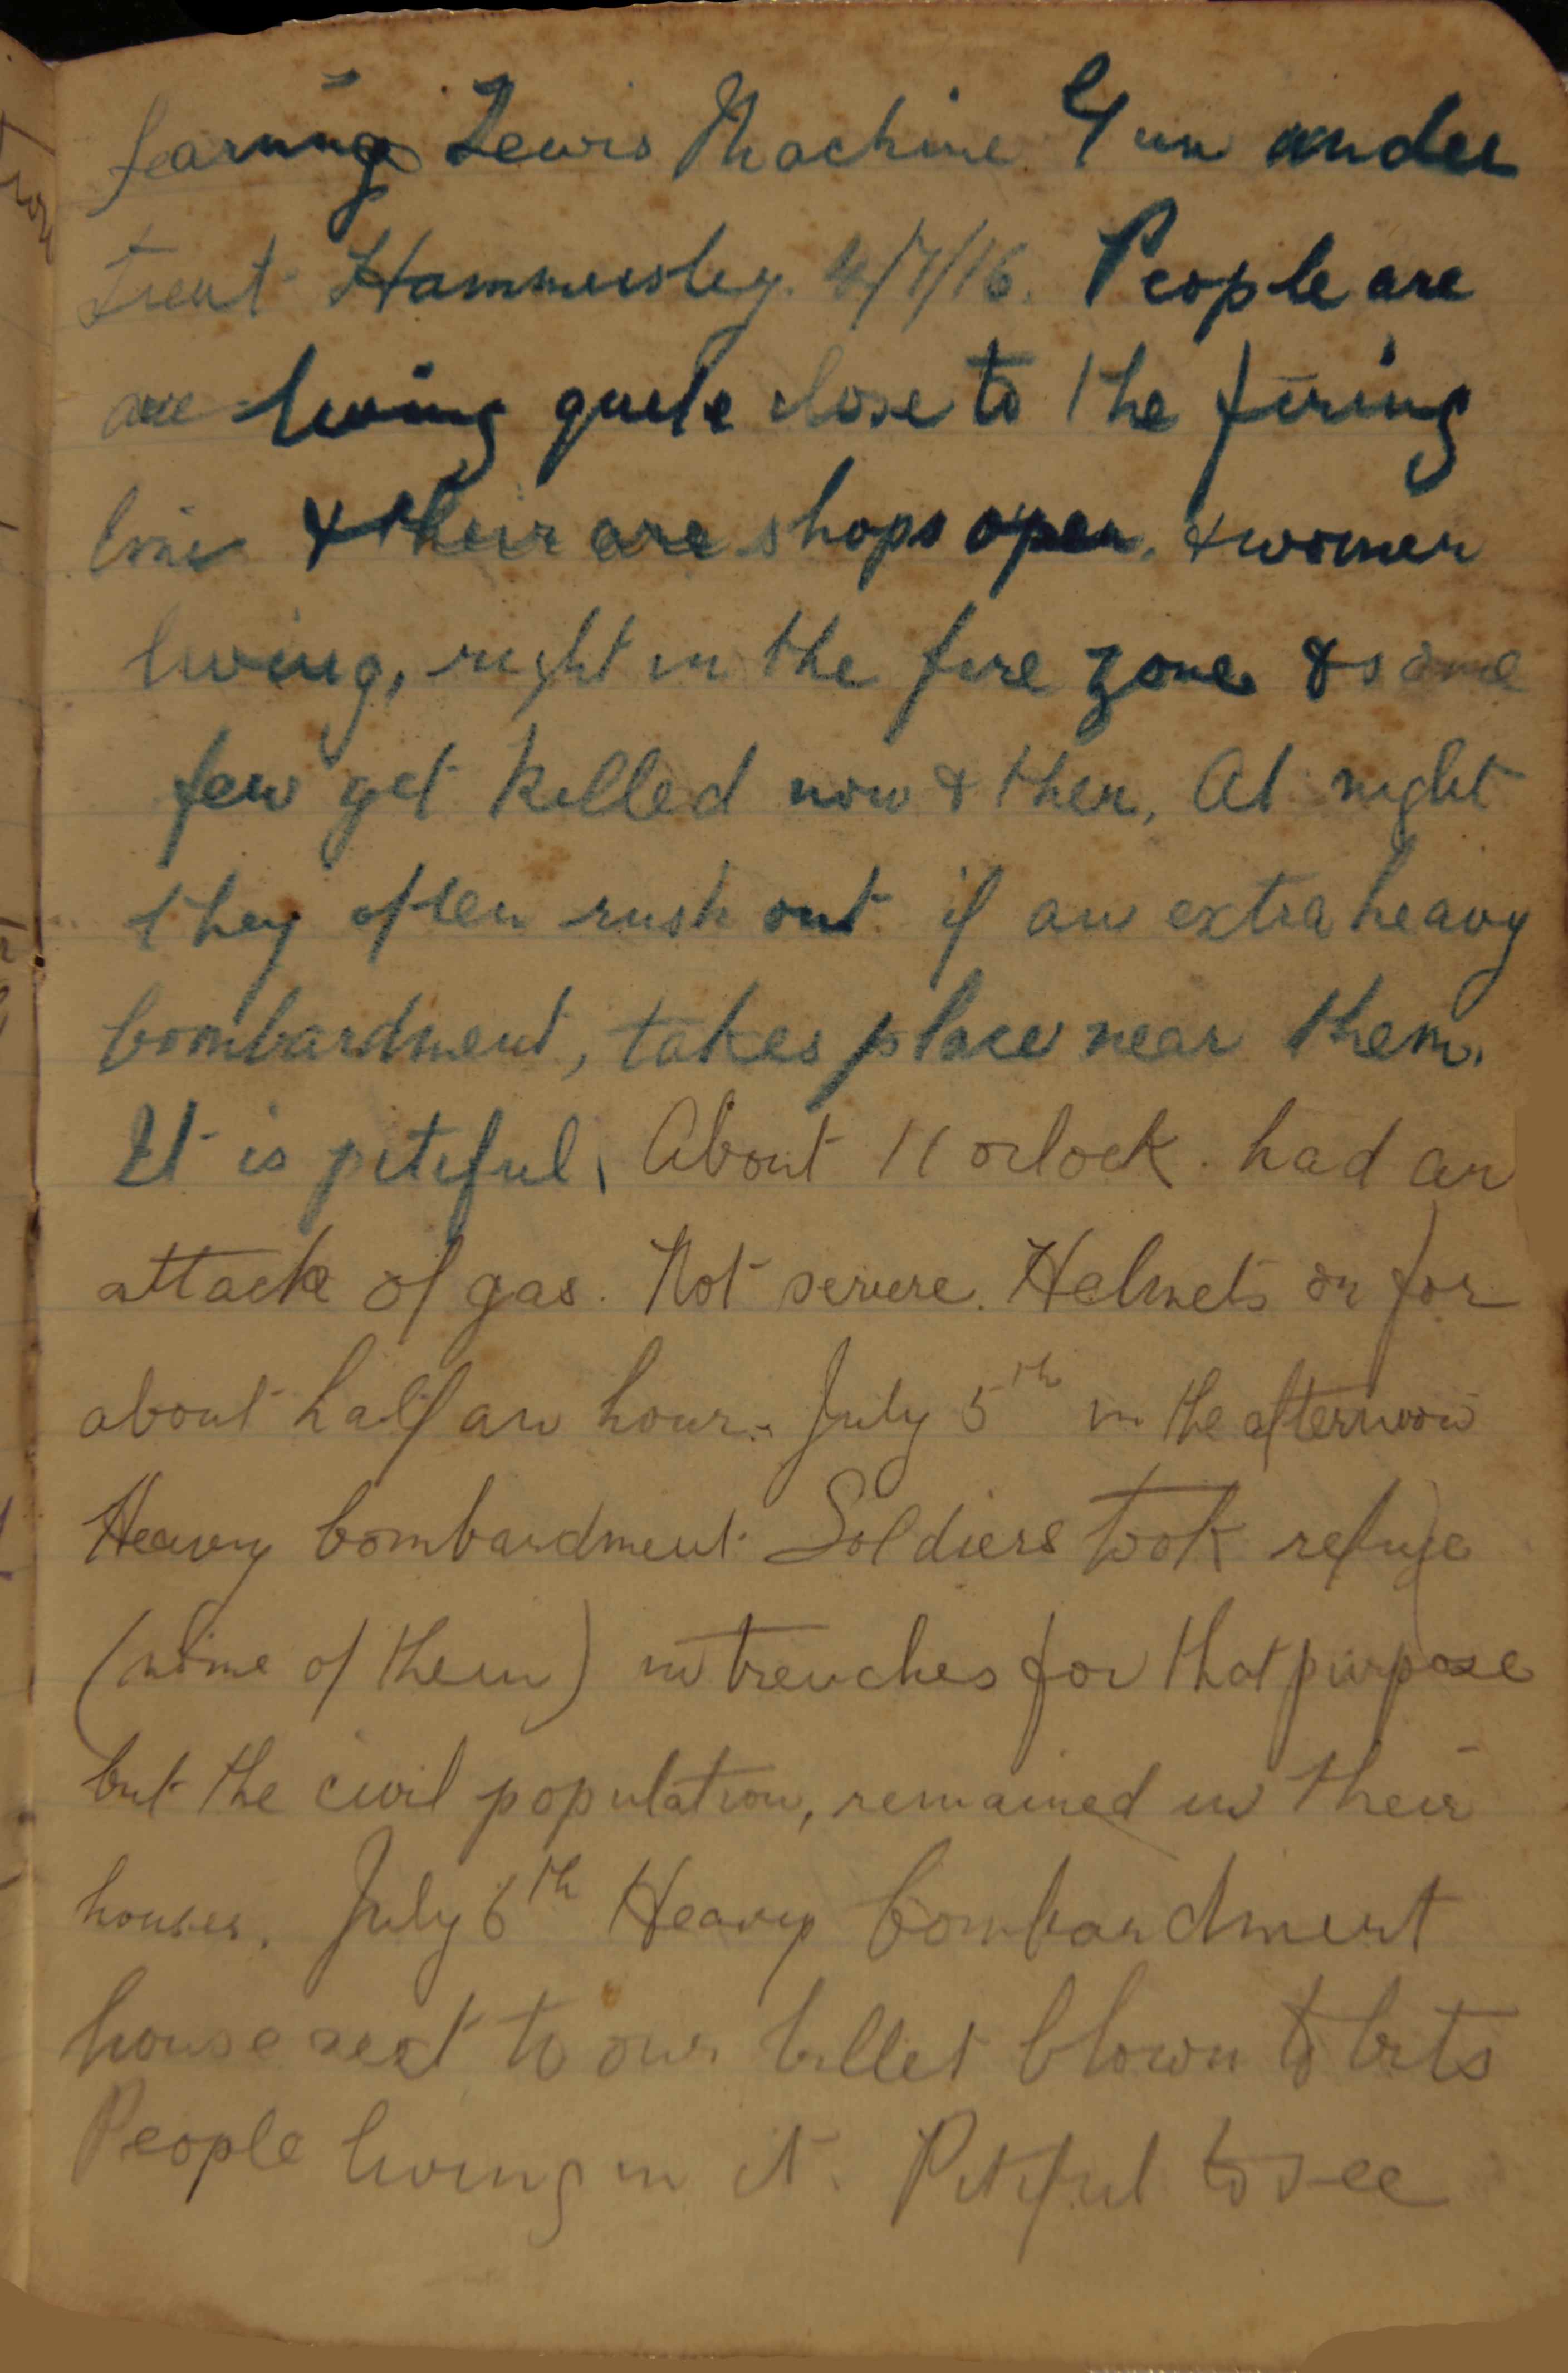 learning Lewis Machine Gun under
Lieut Hammersley. 4/7/16. People are
are living quite close to the firing
line & their are shops open, & women
living, right in the fire zone & some
few get killed now & then, At night
they often rush out if an extra heavy
bombardment, takes place near them.
It is pitiful, About 11 oclock. had an
attack of gas. Not servere. Helmets on for
about half an hour. July 5th in the afternoon
Heavy bombardment Soldiers took refuge
( of them) in trenches for that purpose
but the civil population, remained in their
houses. July 6th Heavy bombardment
house next to our billet blown to bits
People living in it. Pitiful to see